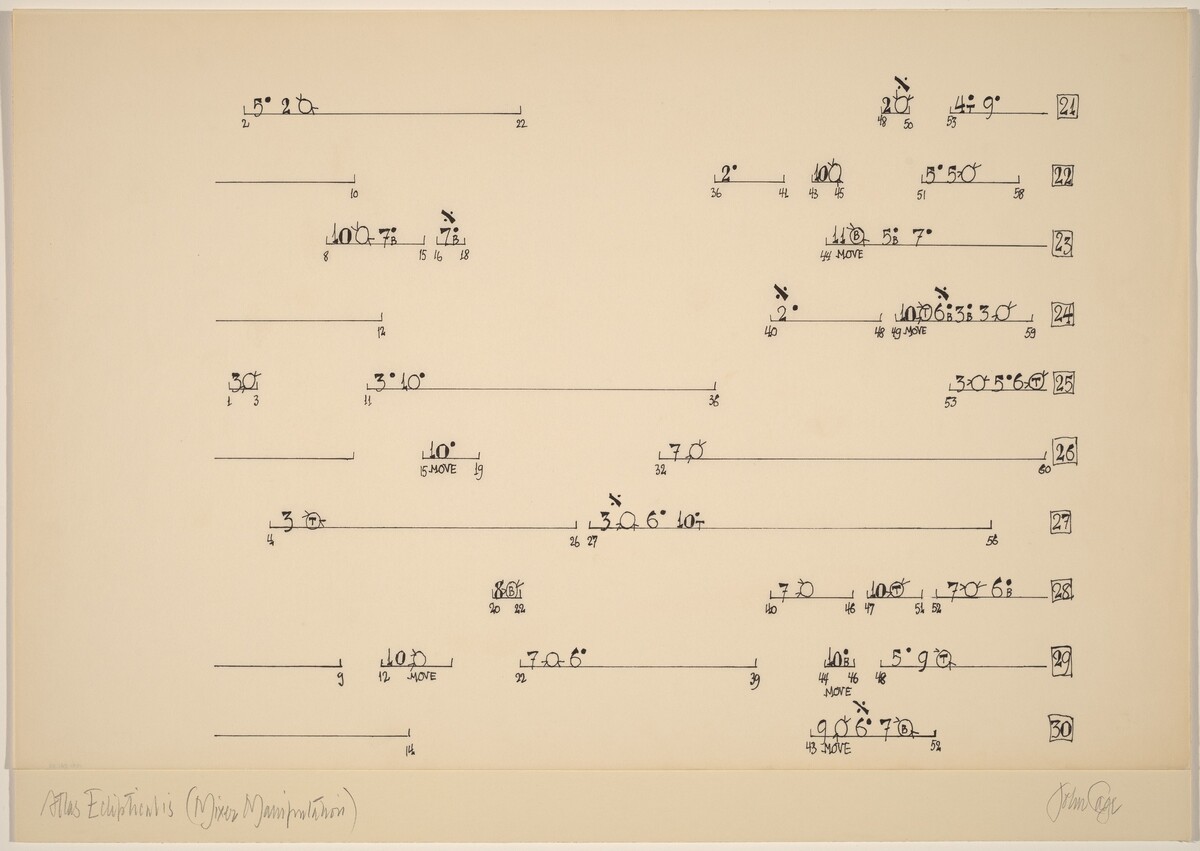 5 2 2 22 2 48 50 4 T 9 53 21
10 2 36 41 10 43 45 5 5 51 58 22
10 7 B 8 15 7 B 16 18 11 B 5 B 7 44 MOVE 23
12 2 40 48 10 T 6 B 3 B 3 49 MOVE 59 24
3 1 3 3 10 11 36 3 5 6 T 53 25
10 15 MOVE 19 7 32 60 26
3 T 4 26 3 6 10 T 27 56 27
8 B 20 22 7 40 46 10 T 47 51 7 6 B 52 28
9 10 12 MOVE 7 6 22 39 10 B 44 46 MOVE 5 9 T 48 29
14 9 6 7 B 43 MOVE 52 30
Atlas Eclipticalis (Mixer Manipulation)
John Cage